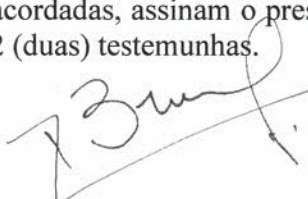 acordadas, assinam o pres
2 (duas) testemunhas.